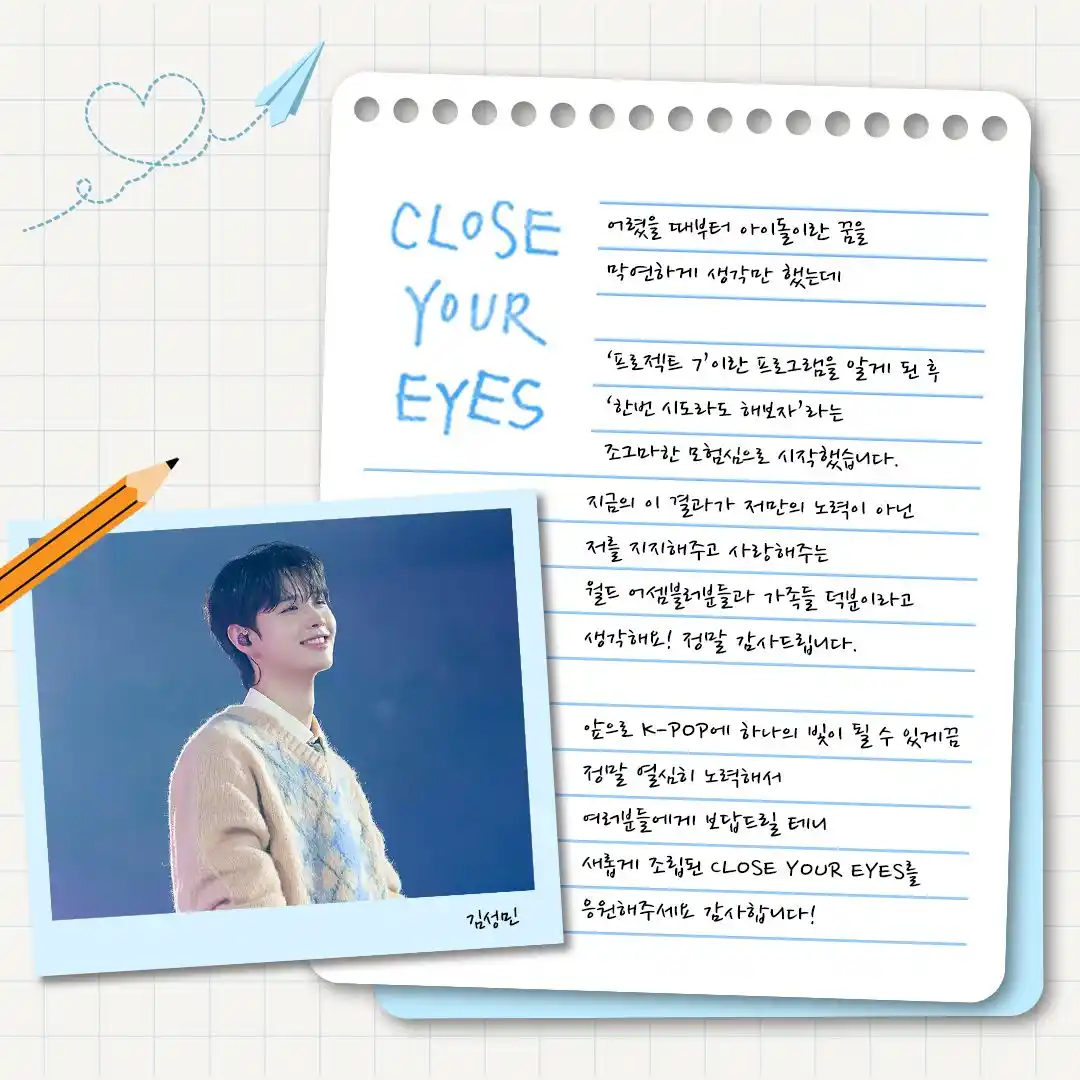 CLOSE
YOUR
EYES
어렸을 때부터 아이돌이란 꿈을
막연하게 생각만 했는데
‘프로젝트 7’이란 프로그램을 알게 된 후
‘한번 시도라도 해보자’라는
조그마한 모험심으로 시작했습니다.
지금의 이 결과가 저만의 노력이 아닌
저를 지지해주고 사랑해주는
월드 어셈블러분들과 가족들 덕분이라고
생각해요! 정말 감사드립니다.
앞으로 K-POP에 하나의 빛이 될 수 있게끔
정말 열심히 노력해서
여러분들에게 보답드릴 테니
새롭게 조립된 CLOSE YOUR EYES를
응원해주세요 감사합니다!
김성민